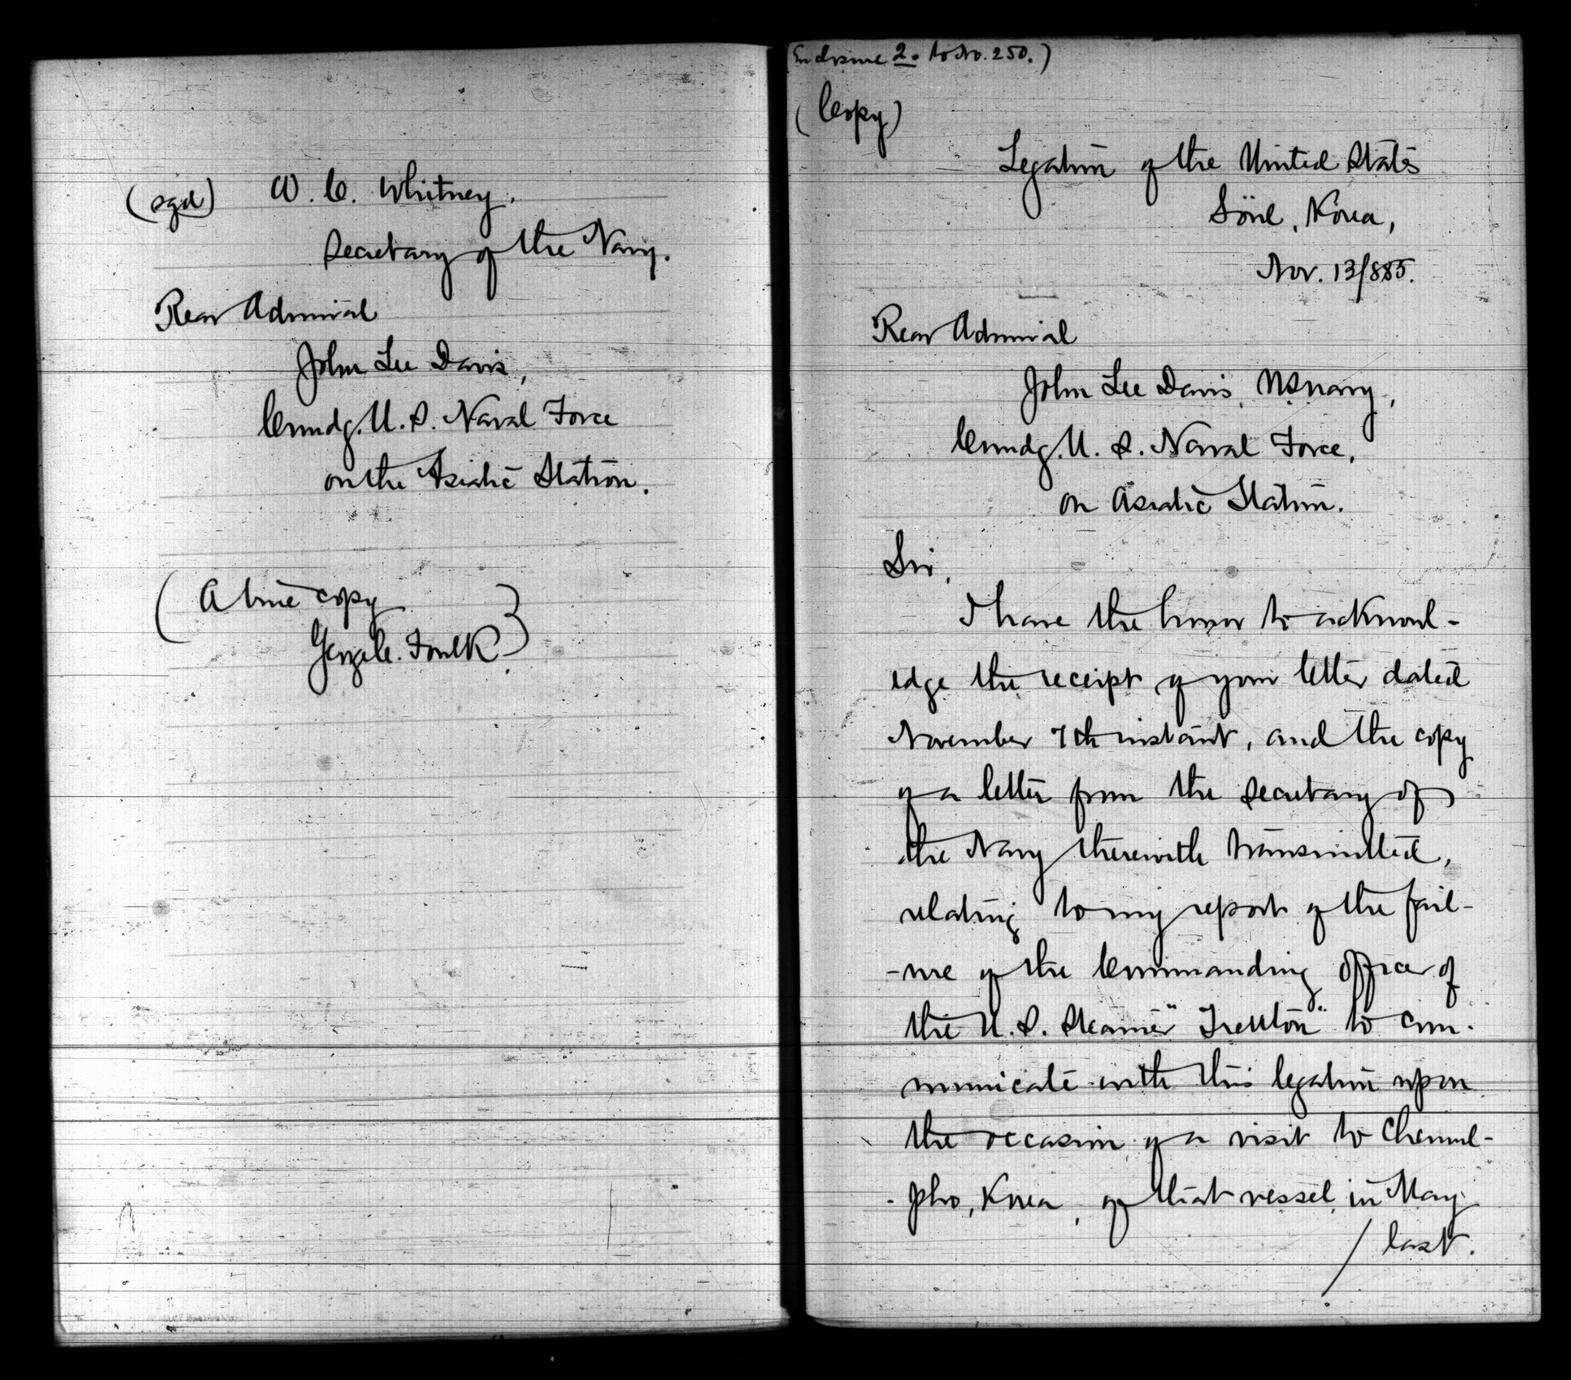 (sgd) W. C. Whitney,
Secretary of the Navy.
Rear Admiral
John Lee Davis,
Commdg. U. S. Naval Force
on the Asiatic Station.
(A true copy
George C. Foulk)
(Enclosure 2. to No. 250.)
(Copy)
Legation of the United States
Söul, Korea,
Nov. 13/885.
Rear Admiral
John Lee Davis, USNavy,
Commdg. U. S. Naval Force,
on Asiatic Station.
Sir,
I have the honor to acknowl-
edge the receipt of your letter dated
November 7th instant, and the copy
of a letter from the Secretary of
the Navy therewith transmitted,
relating to my report of the fail-
-ure of the Commanding Officer of
the U. S. Steamer "Trenton" to com-
municate with this legation upon
the occasion of a visit to Chemul-
-pho, Korea, of that vessel, in May
/ last.